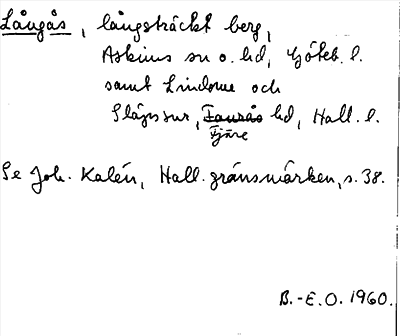 Långås, långsträckt berg,
Askims sn o. hd, Göteb. l.
samt Lindome och
Släps snr, Fjäre hd, Hall. l.
Se Joh. Kalén, Hall. gränsmärken, s. 38.
B.-E.O. 1960.